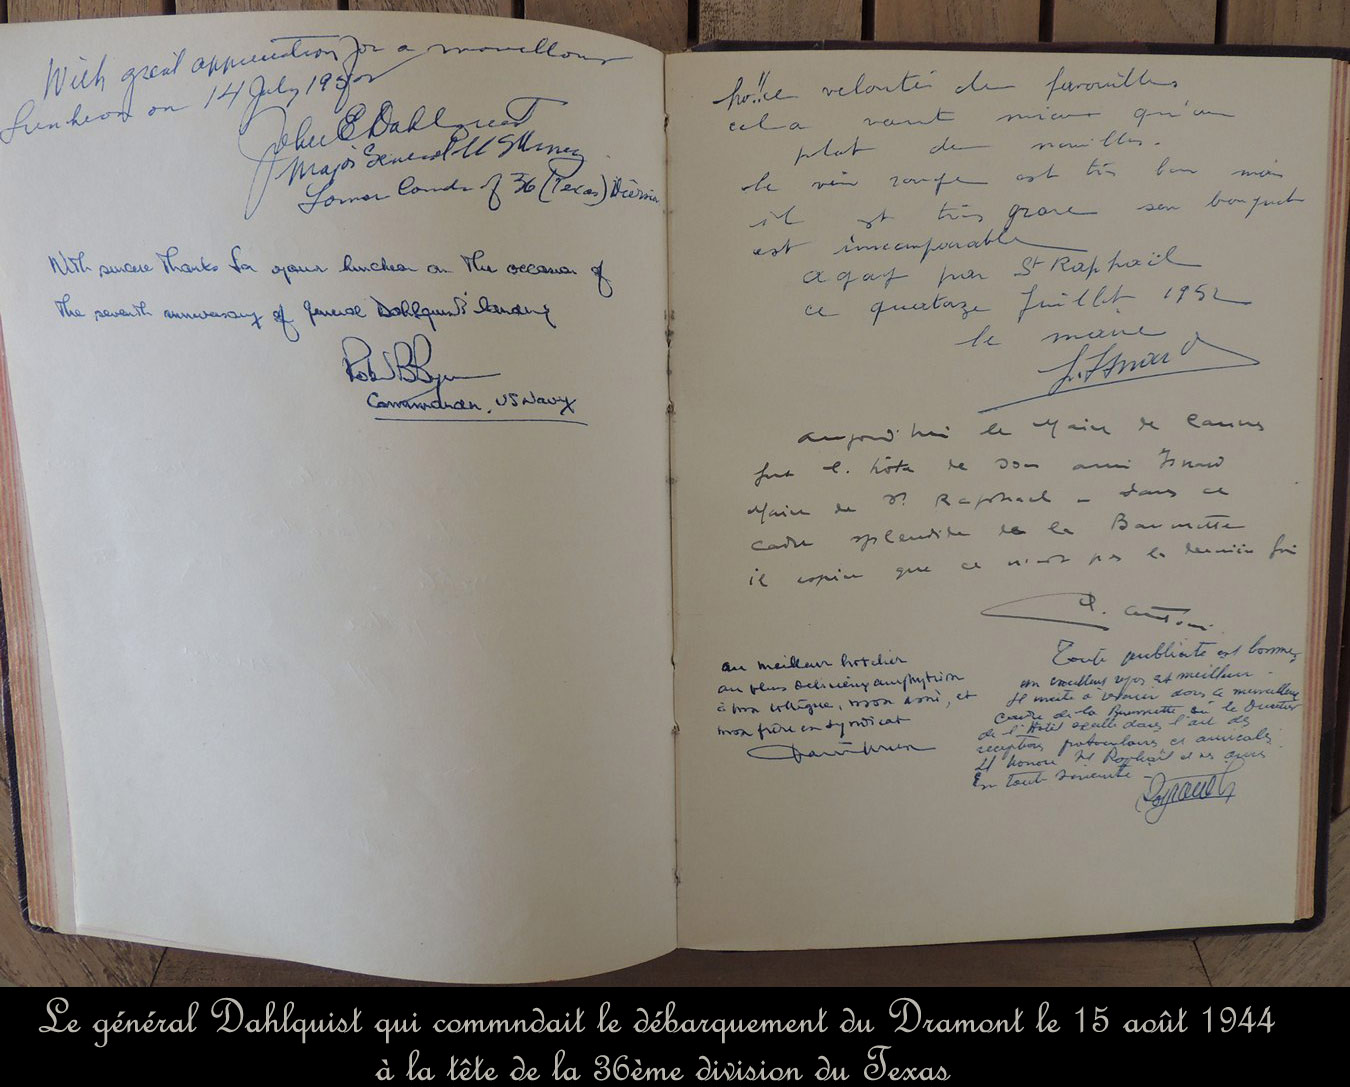 With great appreciation for a marvellous
luncheon on 14 July 195
John E Dahlquist
Major General US Army
Former Comdr of 36 (Texas) Division
With sincere thanks for your luncheon on the occasion of
the seventh anniversary of General Dahlquist's landing
Commander, US Navy
ho!! ce velouté de favouilles
cela vaut mieux qu'un
plat de nouilles.
le vin rouge est très bon mais
il est très grave son bouquet
est incomparable
agay par St Raphaël
ce quatorze Juillet 1952
le maire
L. Isnard
Aujourd'hui le Maire de Cannes
fut l'hôte de son ami Isnard
Maire de St Raphael - dans ce
cadre splendide de la Baumette
il espère que ce n'est pas la dernière fois
au meilleur hotelier
au plus délicieux amphytrion
à mon collègue, mon ami, et
mon frère en syndicat
Toute publicité est bonne,
un excellent repas est meilleur.
Il invite à venir dans ce merveilleux
cadre de la Baumette où le Directeur
de l'Hotel excelle dans l'art des
réceptions et amicales.
Il honore St Raphaël et ses amis
En toute sincérité
Le général Dahlquist qui commndait le débarquement du Dramont le 15 août 1944
à la tête de la 36ème division du Texas